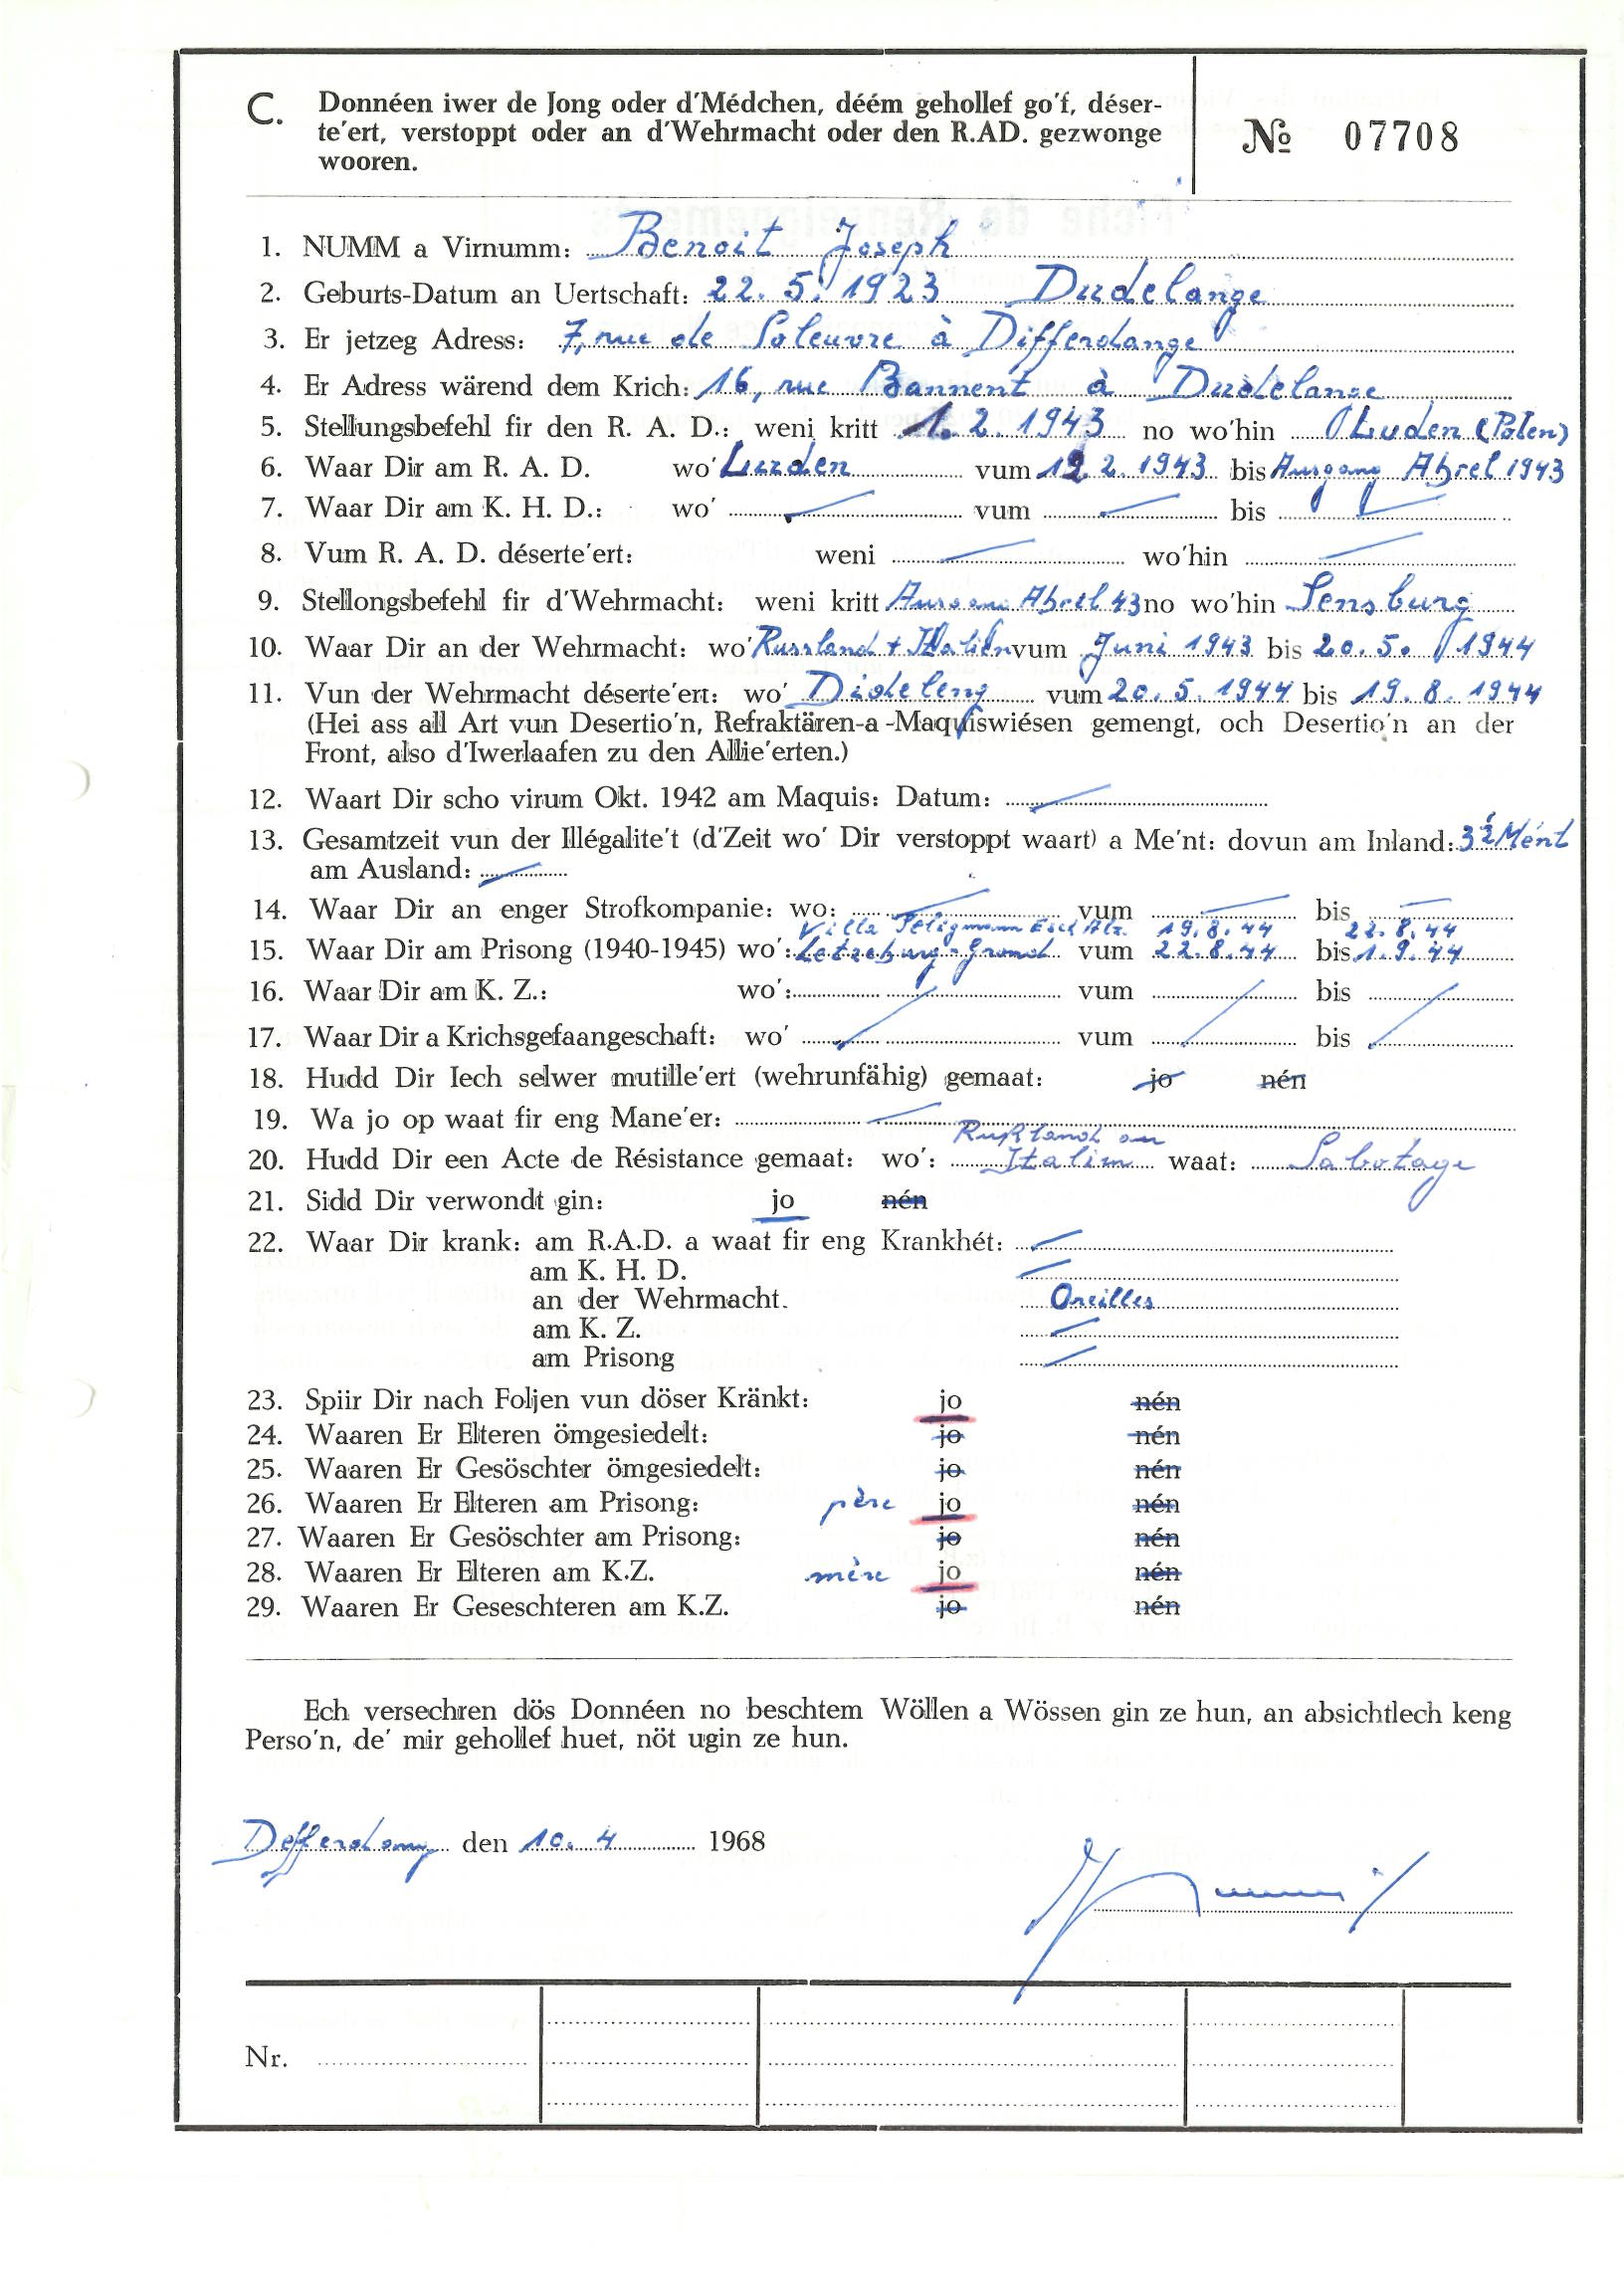 C. Donnéen iwer de Jong oder d'Médchen, déém gehollef go'f, déser-
te'ert, verstoppt oder an d'Wehrmacht oder den R.AD. gezwonge
wooren.
No 07708
1. NUMM a Virnumm: Benoit Joseph
2. Geburts-Datum an Uertschaft: 22. 5. 1923 Dudelange
3. Er jetzeg Adress: 7, rue de Soleuvre à Differdange
4. Er Adress wärend dem Krich: 16, rue Bannent à Dudelange
5. Stellungsbefehl fir den R. A. D.: weni kritt 1. 2. 1943 no wo'hin (Polen)
6. Waar Dir am R. A. D. wo' vum 2. 1943 bis Ausgang Abrel 1943
7. Waar Dir am K. H. D.: wo' vum bis
8. Vum R. A. D. déserte'ert: weni wo'hin
9. Stellongsbefehl fir d'Wehrmacht: weni kritt Ausgang Abrel 43 no wo'hin Sensburg
10. Waar Dir an der Wehrmacht: wo' Russland + Italien vum Juni 1943 bis 20. 5. 1944
11. Vun der Wehrmacht déserte'ert: wo' Dideleng vum 20. 5. 1944 bis 19. 8. 1944
(Hei ass all Art vun Desertio'n, Refraktären-a-Maquiswiésen gemengt, och Desertio'n an der
Front, also d'Iwerlaafen zu den Allie'erten.)
12. Waart Dir scho virum Okt. 1942 am Maquis: Datum:
13. Gesamtzeit vun der Illégalite't (d'Zeit wo' Dir verstoppt waart) a Me'nt: dovun am Inland: 3 1/2 Mént
am Ausland:
14. Waar Dir an enger Strofkompanie: wo: vum bis
Villa Seligmann Esch Alz. 19. 8. 44 22. 8. 44
15. Waar Dir am Prisong (1940-1945) wo': Letzeburg-Grond vum 22. 8. 44 bis 1. 9. 44
16. Waar Dir am K. Z.: wo': vum bis
17. Waar Dir a Krichsgefaangeschaft: wo' vum bis
18. Hudd Dir Iech selwer mutille'ert (wehrunfähig) gemaat: jo nén
19. Wa jo op waat fir eng Mane'er:
Rußland an
20. Hudd Dir een Acte de Résistance gemaat: wo': Italien waat: Sabotage
21. Sidd Dir verwondt gin: jo nén
22. Waar Dir krank: am R.A.D. a waat fir eng Krankhét:
am K. H. D.
an der Wehrmacht. Oreilles
am K. Z.
am Prisong
23. Spiir Dir nach Foljen vun döser Kränkt: jo nén
24. Waaren Er Elteren ömgesiedelt: jo nén
25. Waaren Er Gesöschter ömgesiedelt: jo nén
26. Waaren Er Elteren am Prisong: père jo nén
27. Waaren Er Gesöschter am Prisong: jo nén
28. Waaren Er Elteren am K.Z. mère jo nén
29. Waaren Er Geseschteren am K.Z. jo nén
Ech versechren dös Donnéen no beschtem Wöllen a Wössen gin ze hun, an absichtlech keng
Perso'n, de' mir gehollef huet, nöt ugin ze hun.
den 10. 4 1968
Nr.